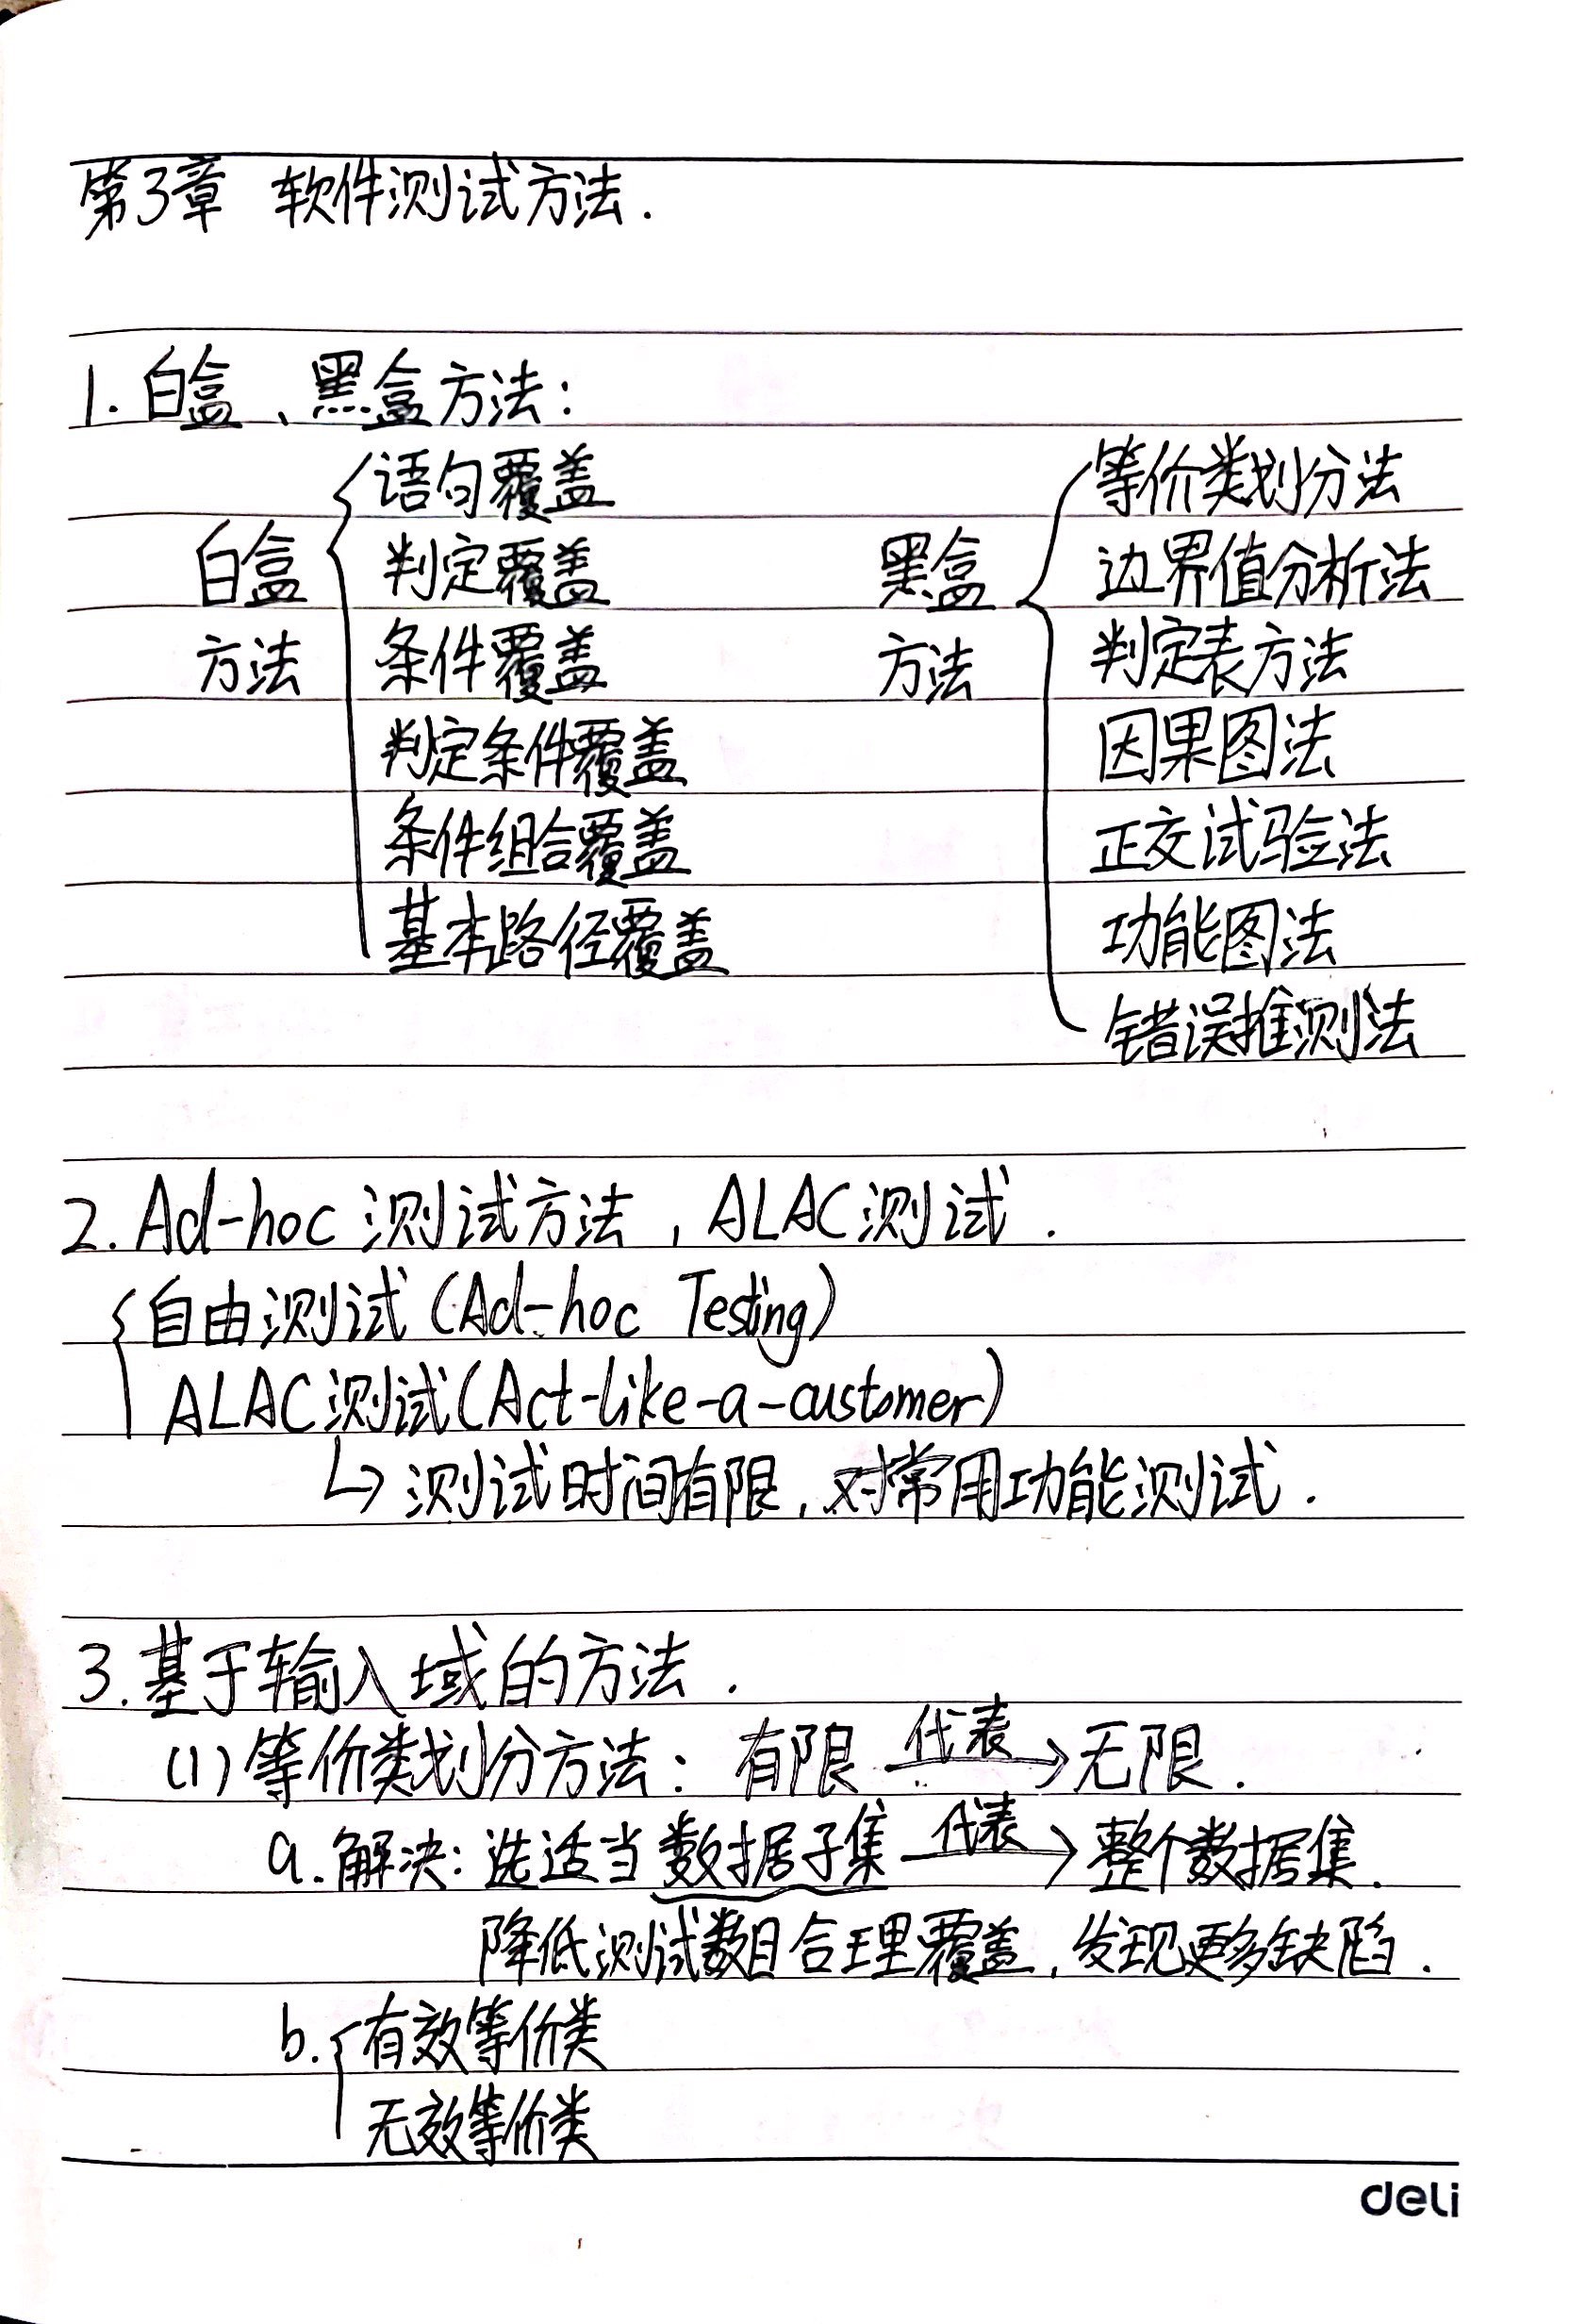 第3章 软件测试方法.
1. 白盒、黑盒方法:
白盒方法
语句覆盖
判定覆盖
条件覆盖
判定条件覆盖
条件组合覆盖
基本路径覆盖
黑盒方法
等价类划分法
边界值分析法
判定表方法
因果图法
正交试验法
功能图法
错误推测法
2. Ad-hoc 测试方法, ALAC测试.
自由测试(Ad-hoc Testing)
ALAC测试(Act-like-a-customer)
↳ 测试时间有限, 对常用功能测试.
3. 基于输入域的方法.
(1) 等价类划分方法: 有限 代表→ 无限.
a. 解决: 选适当数据子集 代表→ 整个数据集.
降低测试数目合理覆盖, 发现更多缺陷.
b. 有效等价类
无效等价类
deli